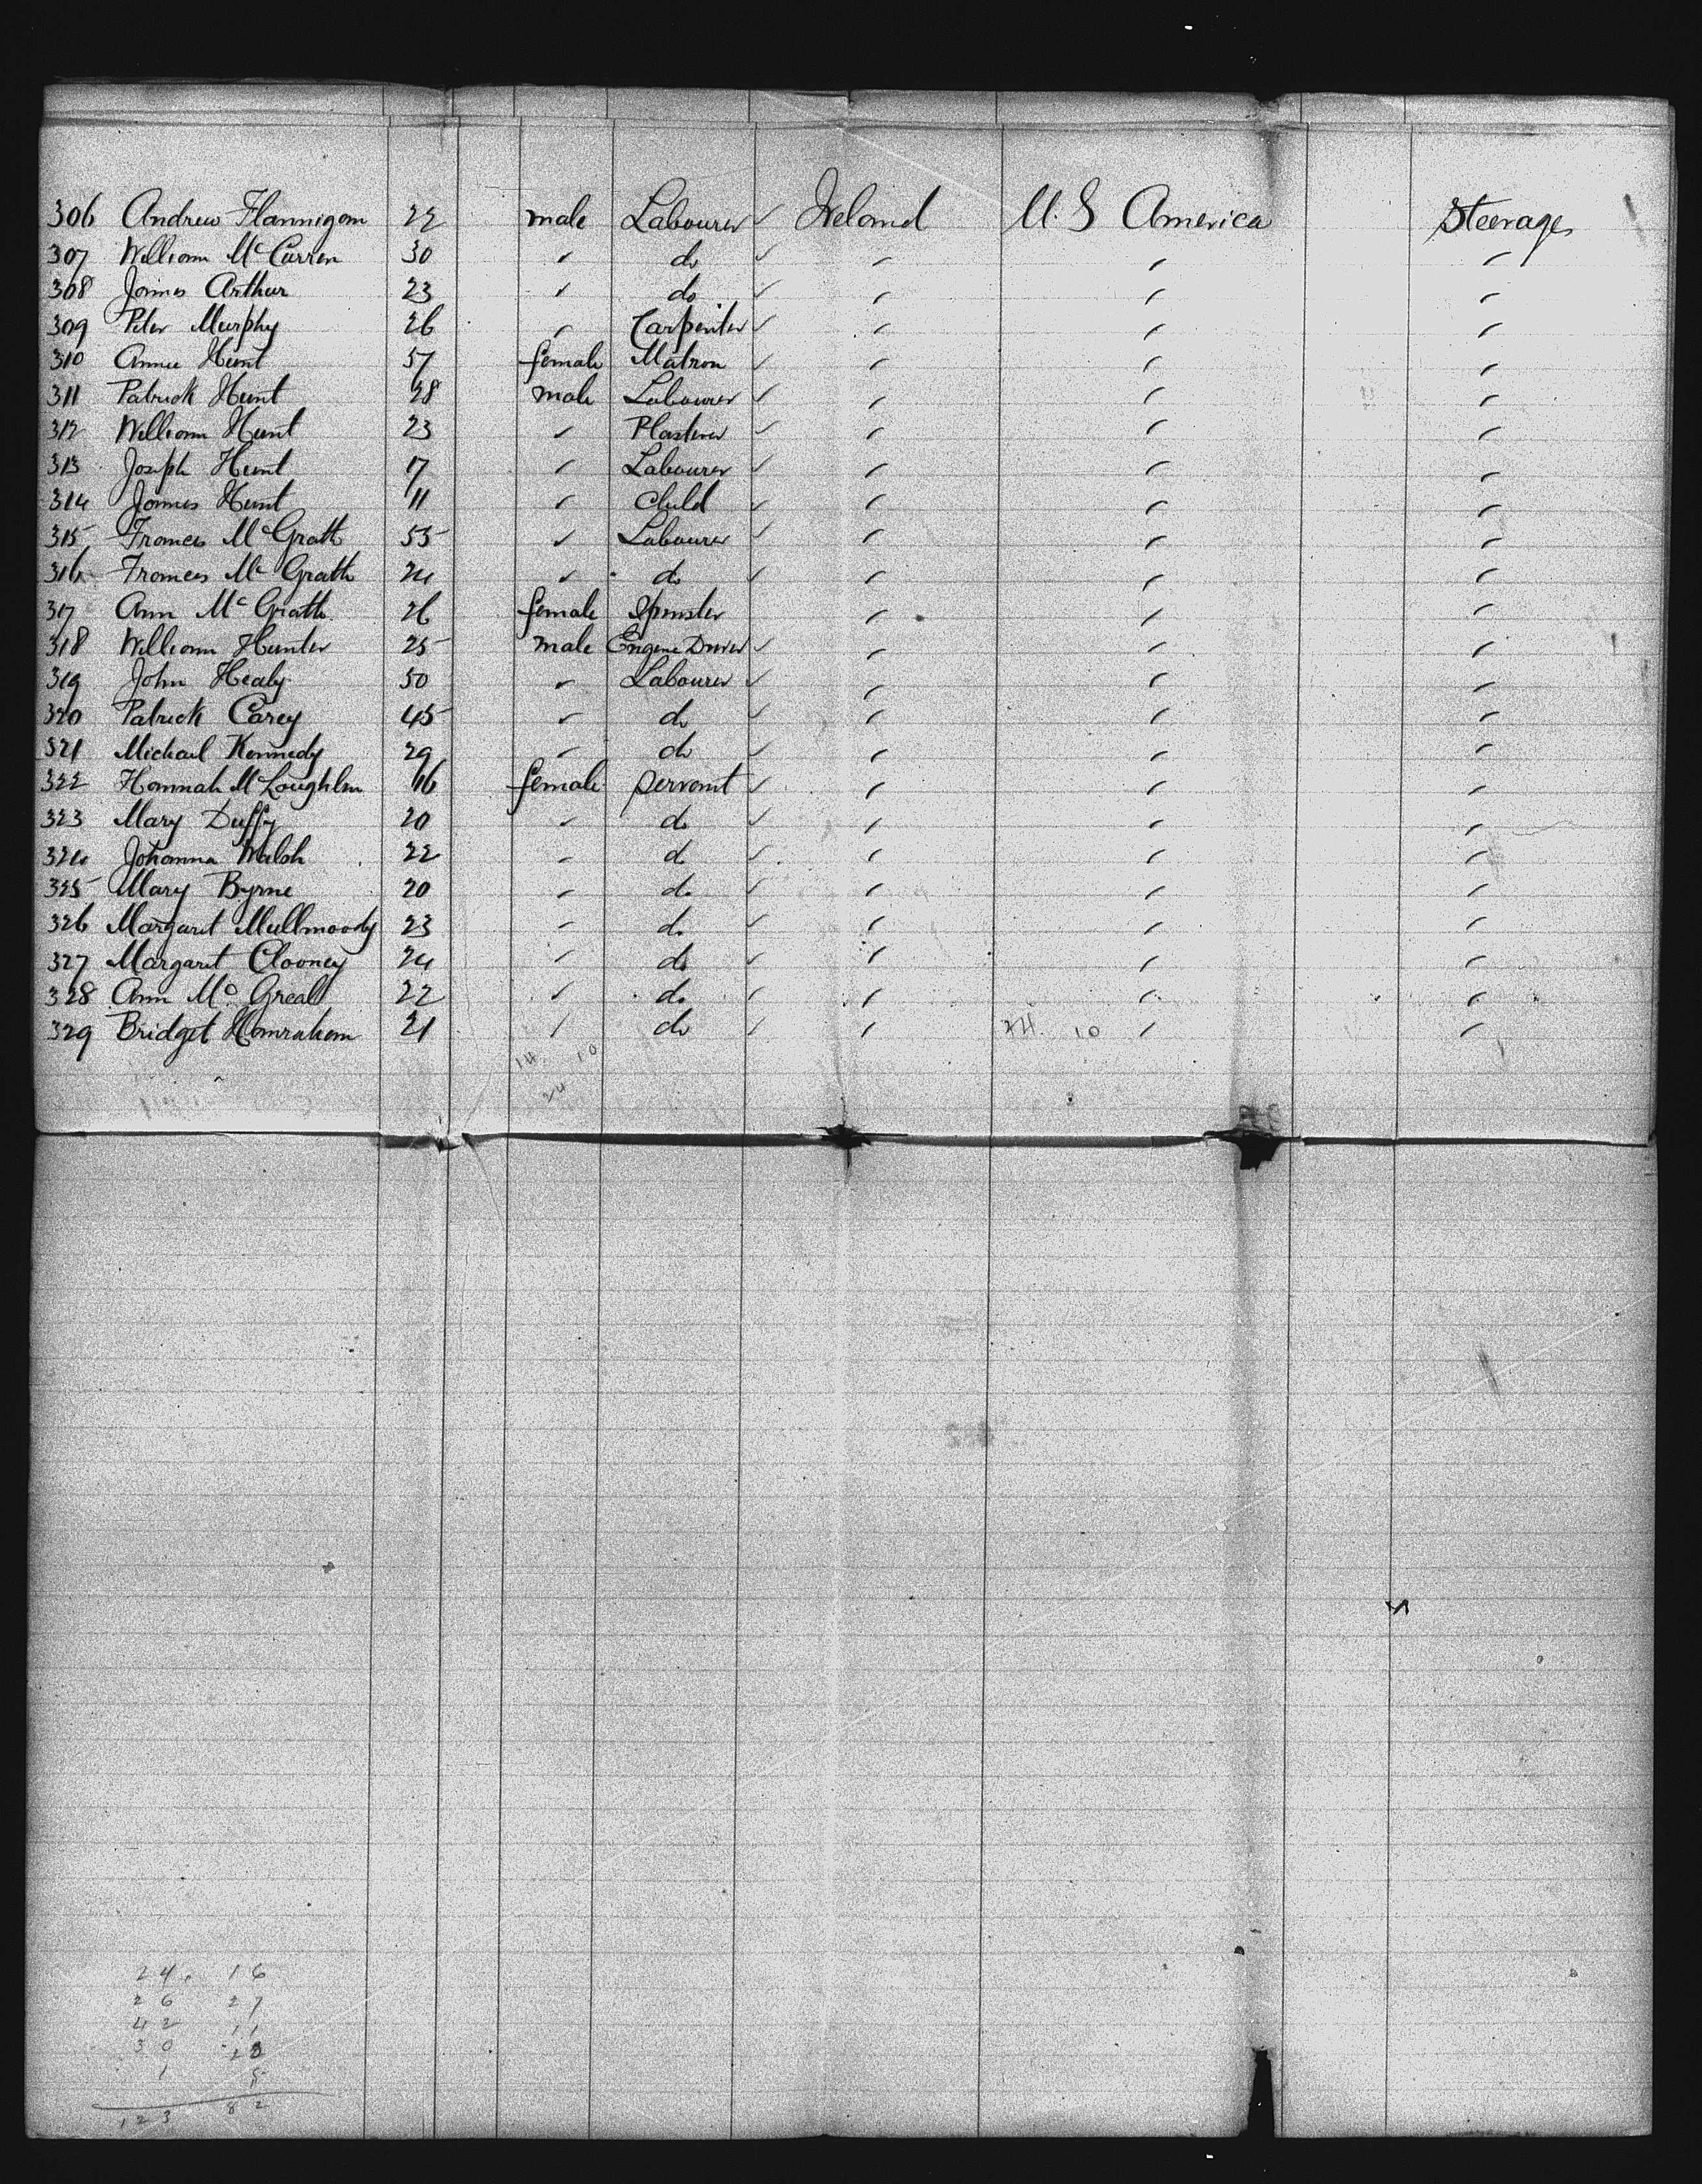 306 Andrew Flannigan 22 male Labourer ✓ Ireland U.S America Steerage
307 William McCarren 30 " do ✓ " " "
308 James Arthur 23 " do ✓ " " "
309 Peter Murphy 26 " Carpenter ✓ " " "
310 Annie Hunt 57 female Matron ✓ " " "
311 Patrick Hunt 28 male Labourer ✓ " " "
312 William Hunt 23 " Plasterer ✓ " " "
313 Joseph Hunt 17 " Labourer ✓ " " "
314 James Hunt 11 " Child ✓ " " "
315 Frances McGrath 55 " Labourer ✓ " " "
316 Frances McGrath 24 " do ✓ " " "
317 Ann McGrath 26 female Spinster " " "
318 William Hunter 25 male Engine Driver ✓ " " "
319 John Healy 50 " Labourer ✓ " " "
320 Patrick Carey 45 " do ✓ " " "
321 Michael Kennedy 29 " do ✓ " " "
322 Hannah McLoughlin 16 female Servant ✓ " " "
323 Mary Duffy 20 " do ✓ " " "
324 Johanna Walsh 22 " do ✓ " " "
325 Mary Byrne 20 " do ✓ " " "
326 Margaret Mullmoody 23 " do ✓ " " "
327 Margaret Clooney 24 " do ✓ " " "
328 Ann McGreal 22 " do ✓ " " "
329 Bridget Hanrahan 21 " do ✓ " " "
14 10
24
10
24. 16
26 27
42 11
30
1
123 82